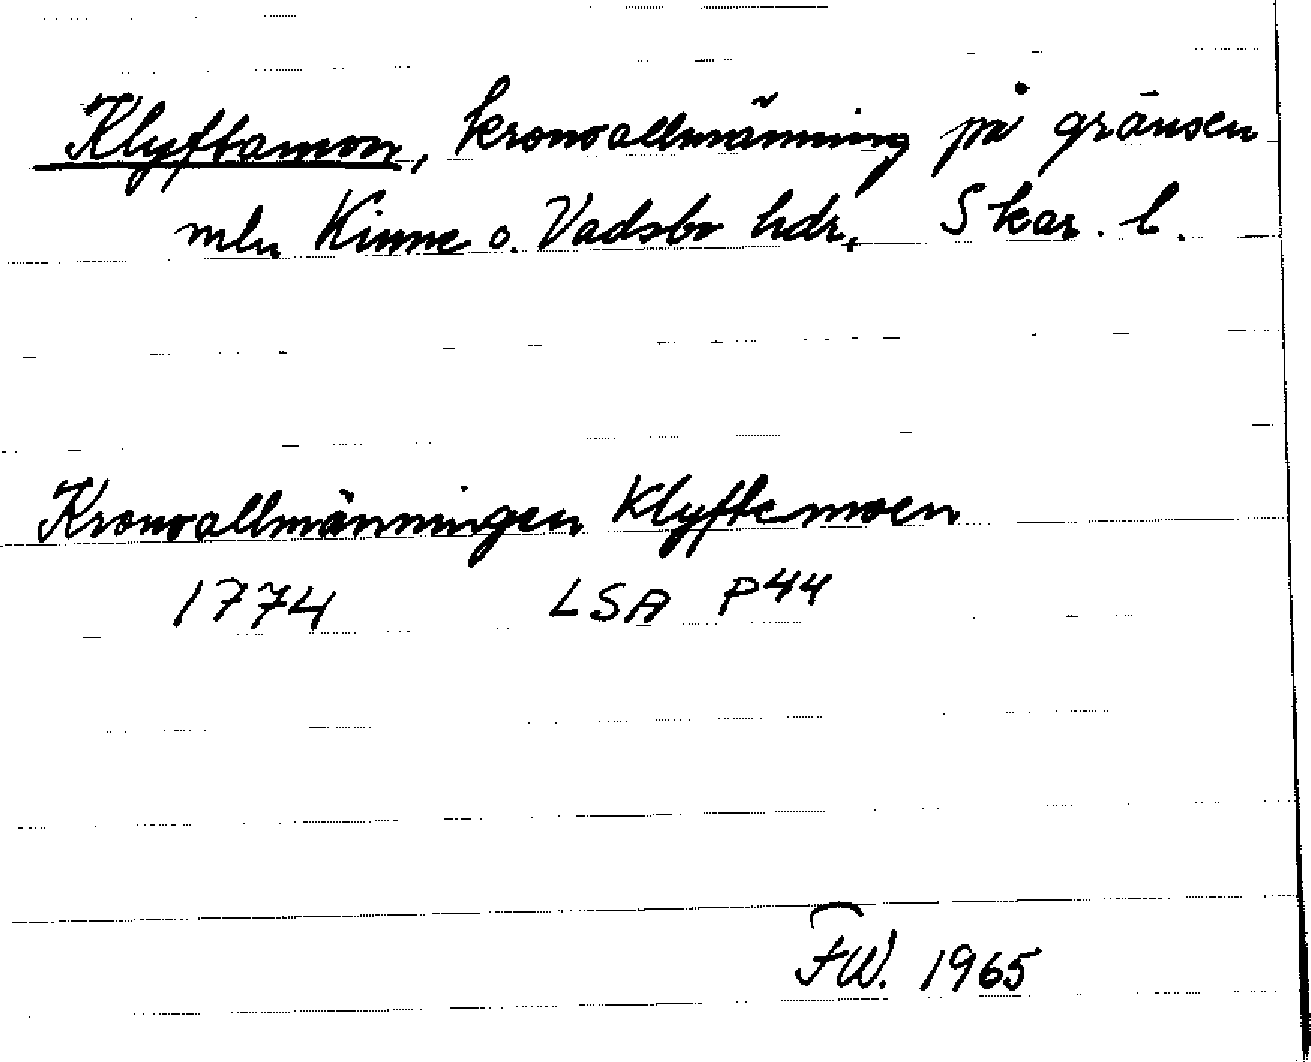 Klyftamon, kronoallmänning på gränsen
mln Kinne o. Vadsbo hdr, Skar. l.
Kronoallmänningen Klyftemoen
1774 LSA P44
FW. 1965